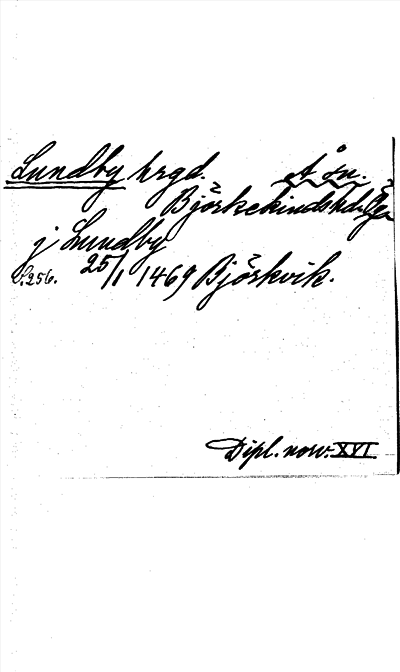 Lundby hrgd. Å sn.
Björkekinds hd. Ög
j Lundby
s. 256. 25/1 1469 Björkvik.
Dipl. norv. XVI.